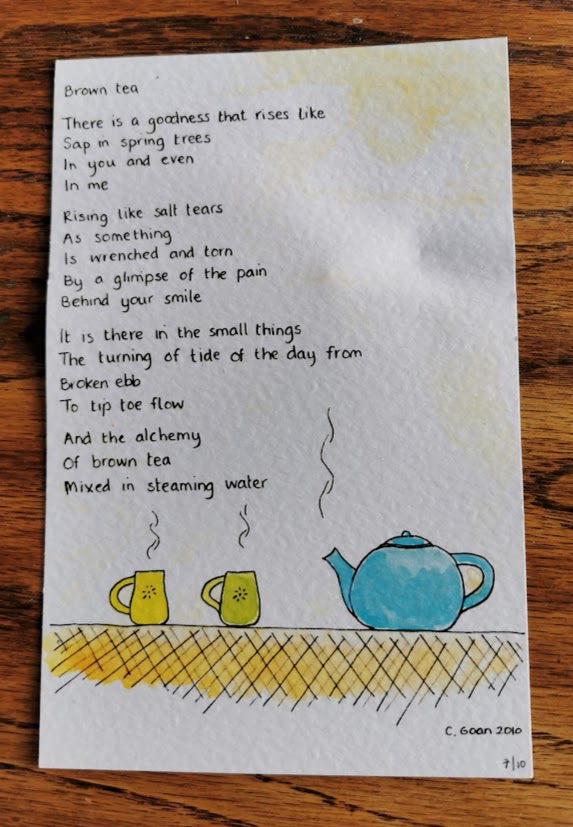 Brown tea
There is a goodness that rises like
Sap in spring trees
In you and even
In me
Rising like salt tears
As something
Is wrenched and torn
By a glimpse of the pain
Behind your smile
It is there in the small things
The turning of tide of the day from
Broken ebb
To tip toe flow
And the alchemy
Of brown tea
Mixed in steaming water
C. Goan 2010
7/10